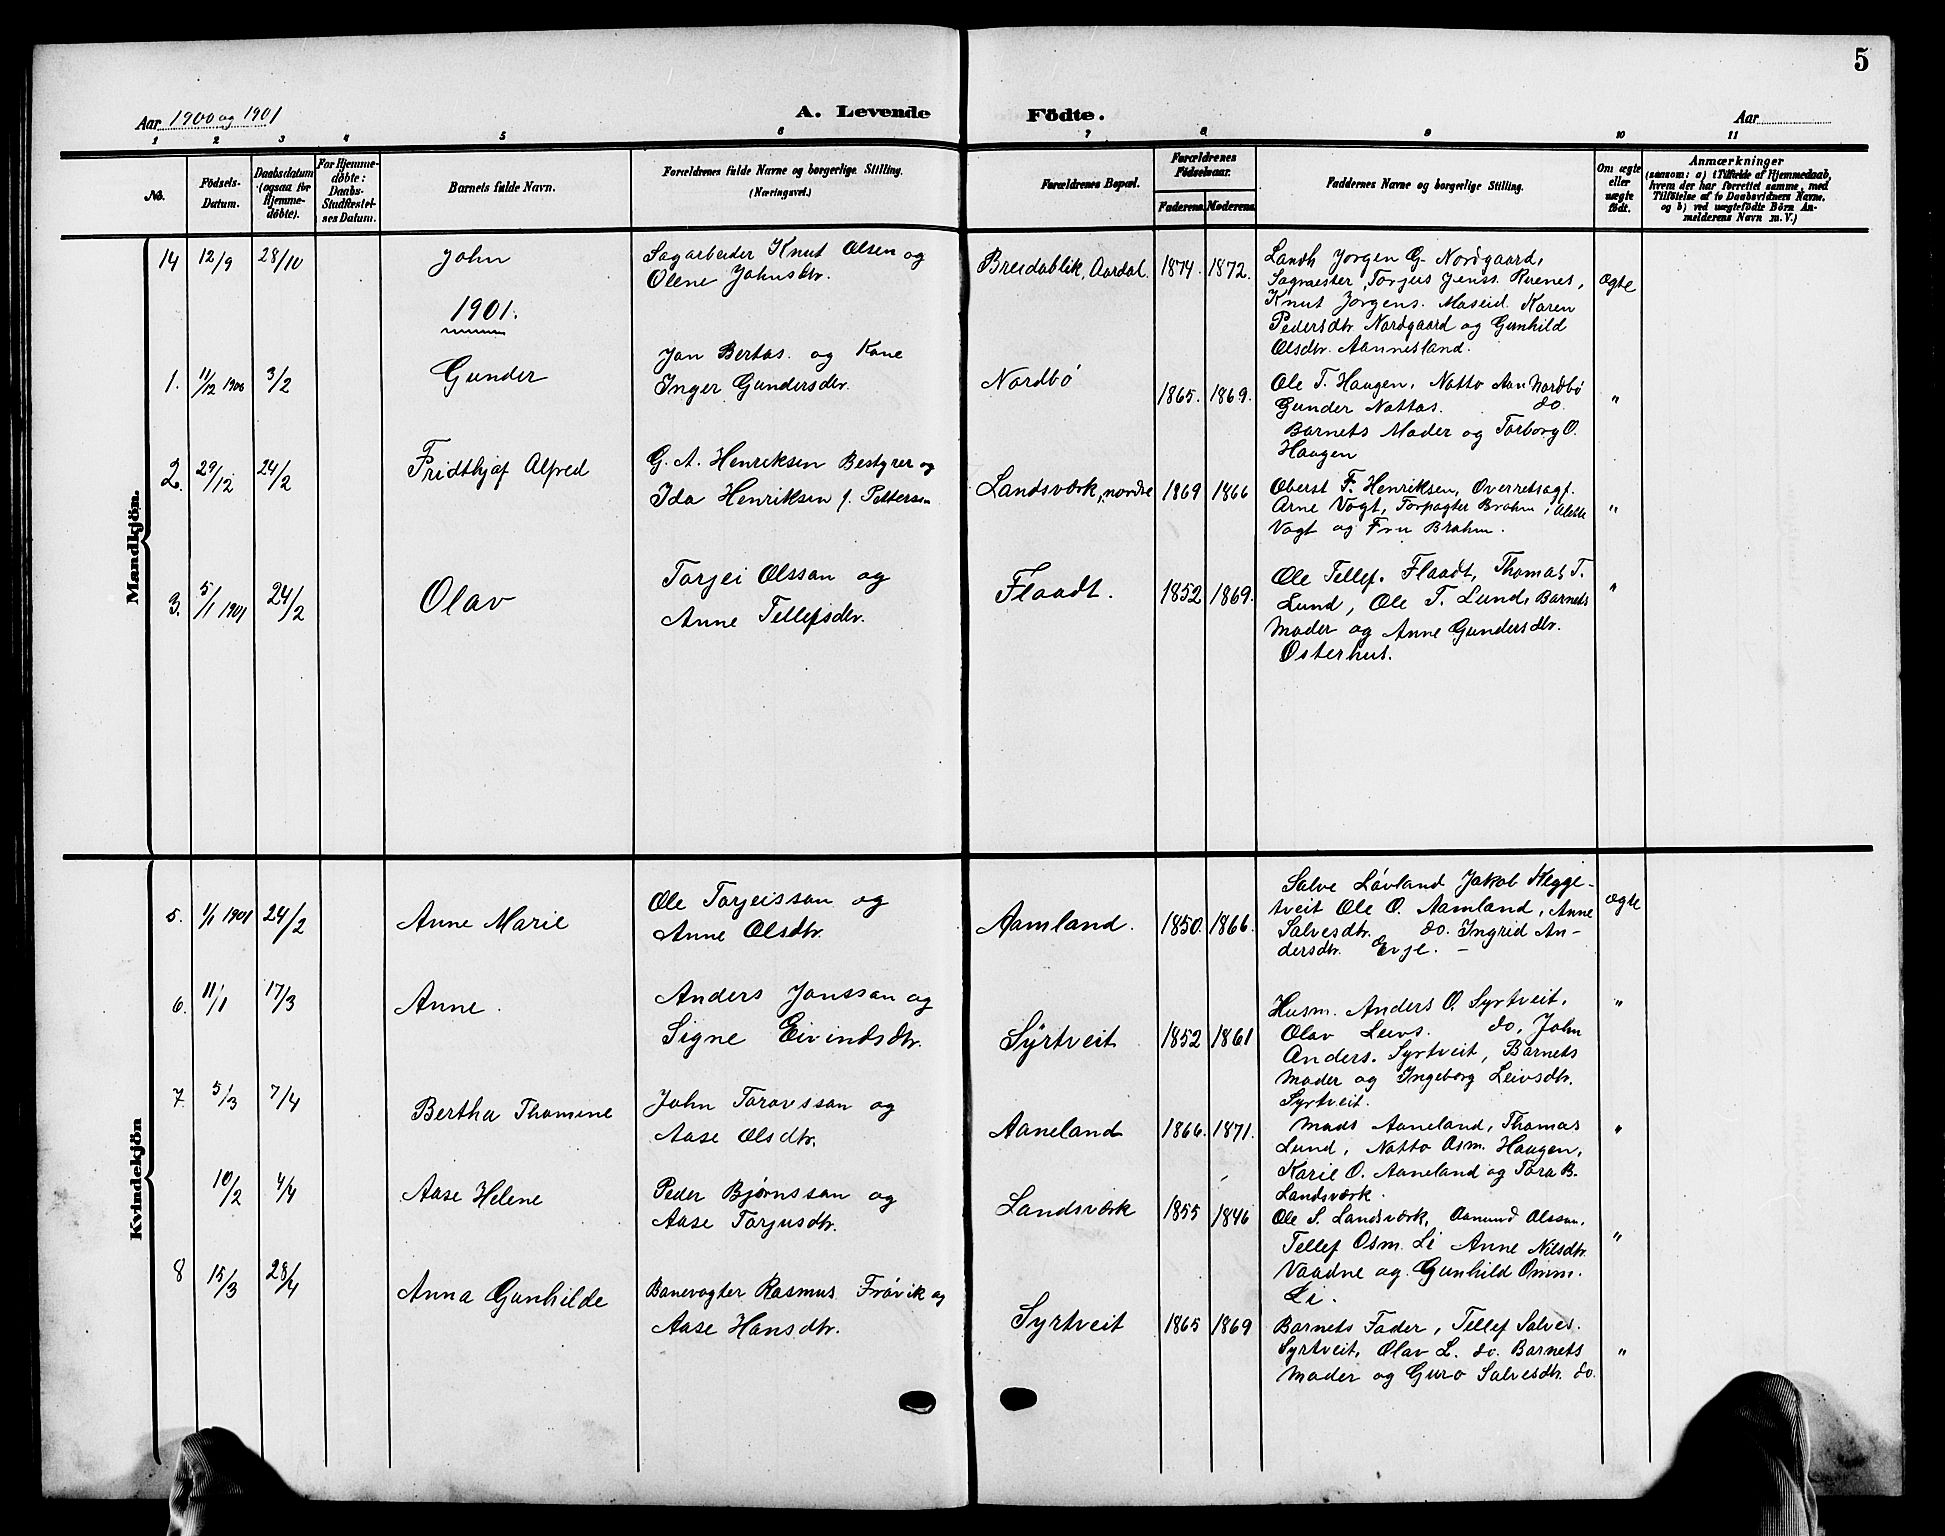 5
Aar 1900 og 1901
A. Levende Födte.
Aar
1 2 3 4 5 6 7 8 9 10 11
No.
Födsels-Datum.
Daabsdatum (ogsaa for Hjemmedöbte).
For Hjemmedöbte: Daabs-Stadfæstelses Datum.
Barnets fulde Navn.
Forældrenes fulde Navne og borgerlige Stilling. (Næringsvei.)
Forældrenes Bopæl.
Forældrenes Födselsaar.
Faderens. Moderens.
Faddernes Navne og borgerlige Stilling.
Om ægte eller uægte födt.
Anmærkninger
(saasom: a) i Tilfælde af Hjemmedaab,
hvem der har forrettet samme, med
Tilföielse af to Daabsvidners Navne,
og b) ved uægtefödte Börn An-
melderens Navn m. V.)
Mandkjön.
14 12/9 28/10 John
Sagarbeider Knut Olsen og
Olene Johnsdtr.
Breidablik, Aardal. 1874. 1872.
Landh Jorgen G. Nordgaard,
Sagmester, Torjus Jenss. Ruenes,
Knut Jorgens. Maseid. Karen
Pedersdtr. Nordgaard og Gunhild
Olsdtr. Aannesland.
ægte
1901.
1. 11/12 1900 3/2 Gunder
Jon Bertas. og Kone
Inger Gundersdtr.
Nordbö 1865. 1869.
Ole T. Haugen, Natto Aan Nordbö
Gunder Nattas. do.
Barnets Moder og Torborg O.
Haugen
"
2. 29/12 24/2 Fridthjof Alfred
G. A. Henriksen Bestyrer og
Ida Henriksen f. Pettersen
Landsværk, nordre 1869 1866
Oberst F. Henriksen, Overretsagf.
Arne Vogt, Forpagter Brahm, Alette
Vogt og Fru Brahm.
"
3. 5/1 1901 24/2 Olav
Torjei Olsson og
Anne Tellefsdtr.
Flaadt. 1852 1869.
Ole Tellef. Flaadt, Thomas T.
Lund, Ole T. Lund, Barnets
Moder og Anne Gundersdtr.
Osterhus.
"
Kvindekjön
5. 1/1 1901 24/2 Anne Marie
Ole Torjeisson og
Anne Olsdtr.
Aamland. 1850. 1866.
Salve Lövland Jakob Hegge-
tveit Ole O. Aamland, Anne
Salvesdtr. do. Ingrid An-
dersdtr. Evje. –
ægte
6. 11/1 17/3 Anne.
Anders Jonsson og
Signe Eivindsdtr.
Syrtveit 1852 1861
Husm. Anders O. Syrtveit,
Olav Leivs. do, John
Anders. Syrtveit, Barnets
Moder og Ingeborg Leivsdtr.
Syrtveit.
"
7. 5/3 7/4 Bertha Thomine
John Toravsson og
Aase Olsdtr.
Aaneland 1866. 1871.
Mads Aaneland, Thomas
Lund, Natto Osm. Haugen,
Karie O. Aaneland og Tora B.
Landsværk.
"
10/2 4/4 Aase Helene
Peder Bjørnsson og
Aase Torjusdtr.
Landsværk 1855 1846
Ole S. Landsværk, Aanund Olsson,
Tellef Osm. Li Anne Nilsdtr.
Vaadne og Gunhild Omm.
Li.
"
8 15/3 28/4 Anna Gunhilde
Banevogter Rasmus Frövik og
Aase Hansdtr.
Syrtveit 1865 1869
Barnets Fader, Tellef Salves.
Syrtveit, Olav L. do. Barnets
Moder og Guro Salvesdtr. do.
"